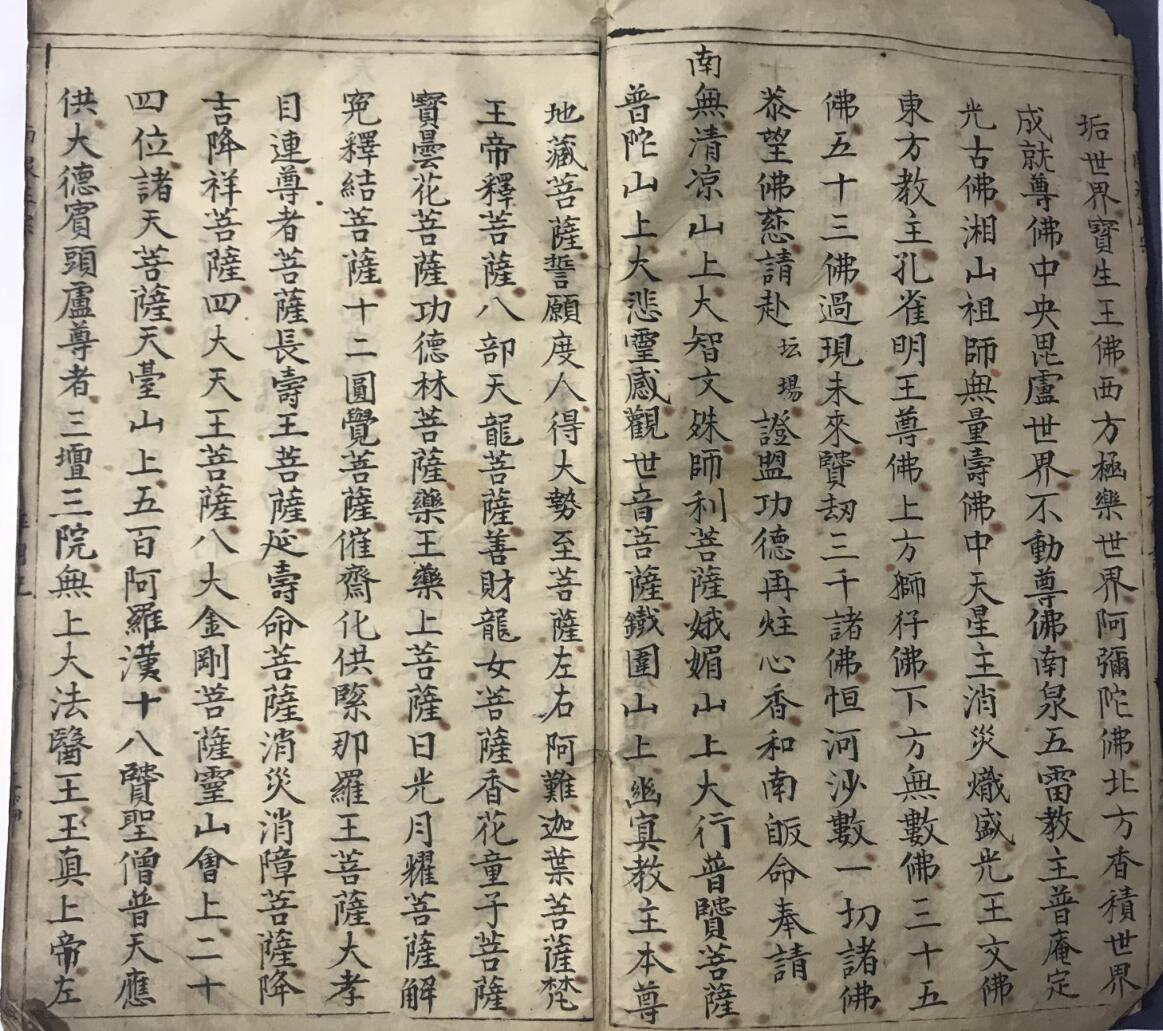 垢世界寶生王佛西方極樂世界阿彌陀佛北方香積世界
成就尊佛中央毘盧世界不動尊佛南泉五雷教主普庵定
光古佛湘山祖師無量壽佛中天星主消災熾盛光王文佛
東方教主孔雀明王尊佛上方獅仔佛下方無數佛三十五
佛五十三佛過現未來賢刼三千諸佛恒河沙數一切諸佛
恭望佛慈請赴坛場證盟功德再炷心香和南皈命奉請
南無清凉山上大智文殊師利菩薩娥媚山上大行普賢菩薩
普陀山上大悲靈感觀世音菩薩鐵圍山上幽冥教主本尊
地藏菩薩誓願度人得大勢至菩薩左右阿難迦葉菩薩梵
王帝釋菩薩八部天龍菩薩善財龍女菩薩香花童子菩薩
寶曇花菩薩功德林菩薩藥王藥上菩薩日光月耀菩薩解
冤釋結菩薩十二圓覺菩薩催齋化供緊那羅王菩薩大孝
目連尊者菩薩長壽王菩薩延壽命菩薩消災消障菩薩降
吉降祥菩薩四大天王菩薩八大金剛菩薩靈山會上二十
四位諸天菩薩天臺山上五百阿羅漢十八賢聖僧普天應
供大德賓頭盧尊者三壇三院無上大法醫王王真上帝左